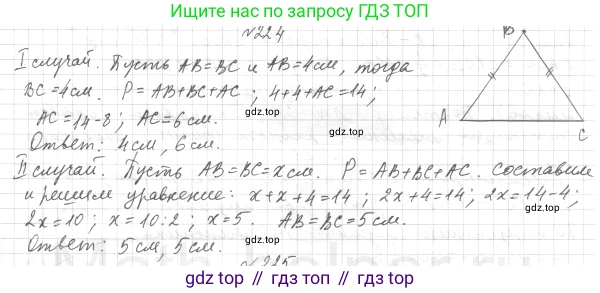 Ищите нас по запросу ГДЗ ТОП
№224
I случай. Пусть AB=BC и AB=4см, тогда
BC=4см. P=AB+BC+AC; 4+4+AC=14;
AC=14-8; AC=6см.
Ответ: 4см, 6см.
II случай. Пусть AB=BC=xсм. P=AB+BC+AC. Составим
и решим уравнение: x+x+4=14; 2x+4=14; 2x=14-4;
2x=10; x=10:2; x=5. AB=BC=5см.
Ответ: 5см, 5см.
№225
B
A
C
gdz.top
gdz.top
gdz.top
gdz.top
gdz top // гдз топ // gdz top